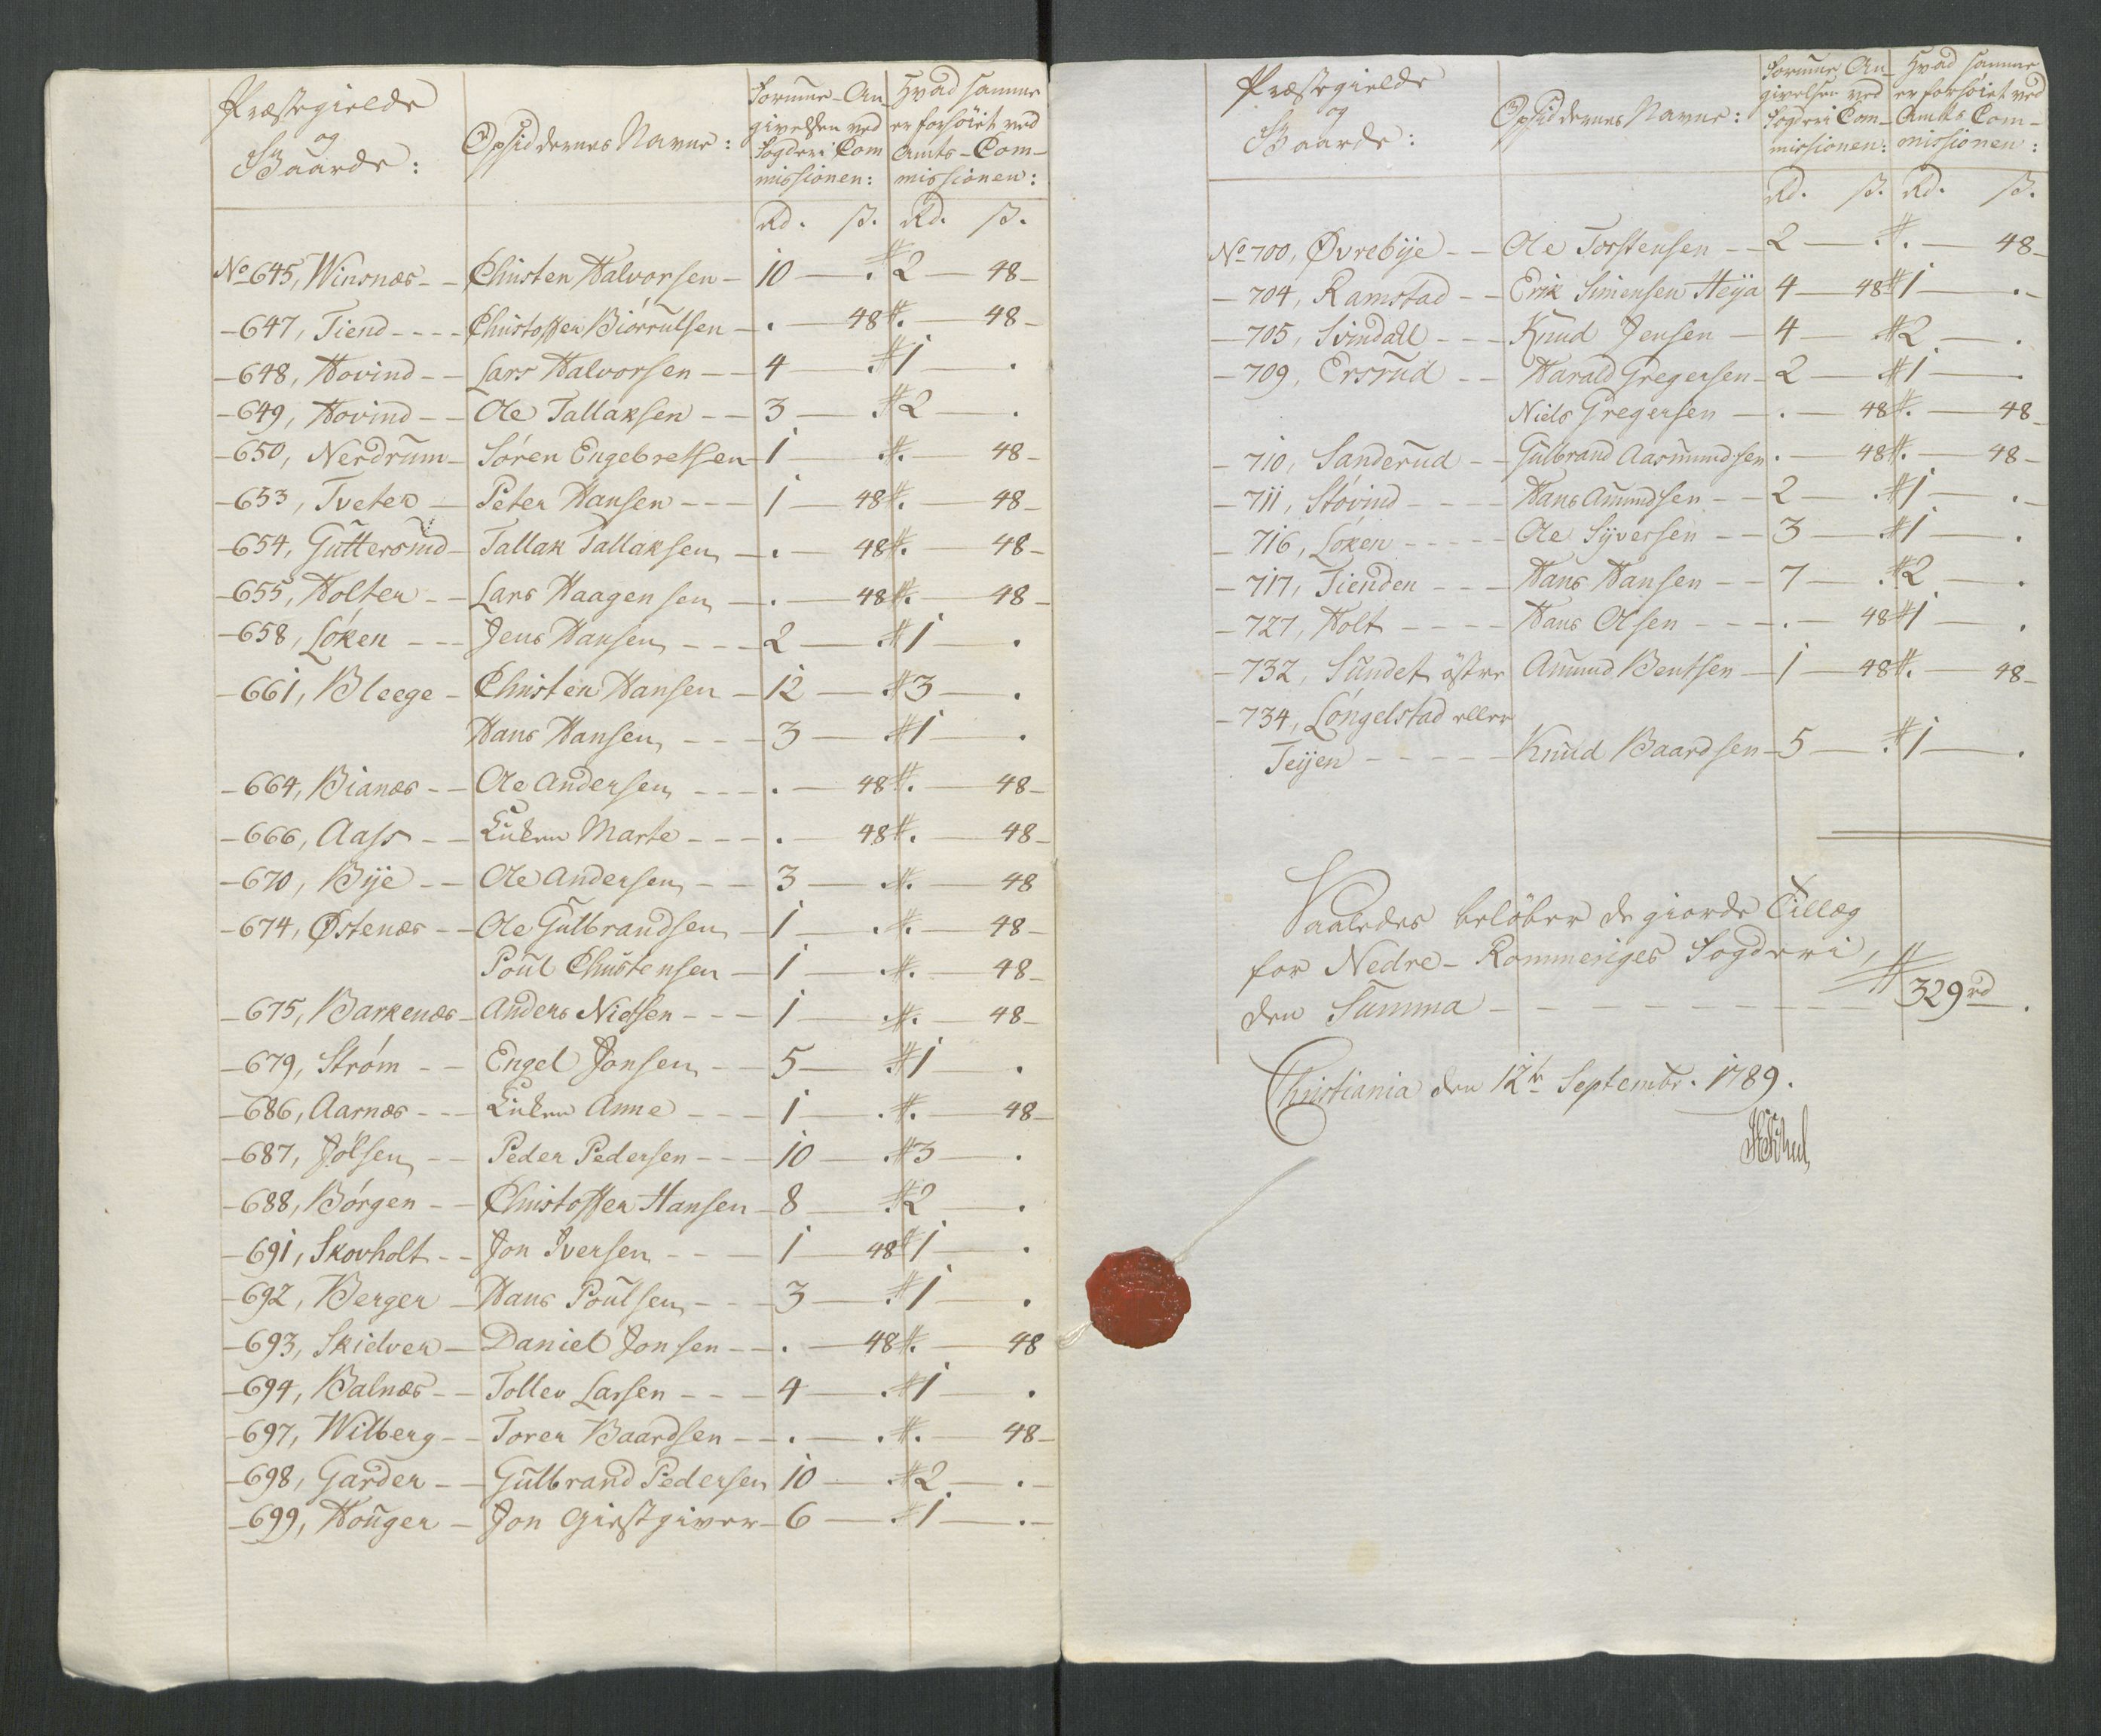 Præstegielde
og
Gaarde:
Opsiddernes Navne:
Formue-An-
givelsen ved
Fogderi Com
missionen:
Hvad samme
er forhöiet ved
Amts-Com-
missionen:
Rd. ß. Rd. ß.
No 645, Winsnæs -- Christen Halvorsen - 10 — . # 2 — 48 -
- 647, Tiend ---- Christoffer Biörrulsen - . — 48 # . — 48 -
- 648, Hovind -- Lars Halvorsen -- 4 — . # 1 — .
- 649, Hovind -- Ole Tallaksen -- 3 — . # 2 — .
- 650, Nerdrum - Sören Engebretsen - 1 — . # . — 48 -
- 653, Tveter - Peter Hansen --- 1 — 48 # . — 48 -
- 654, Guttersrud - Tallak Tallaksen - . — 48 # . — 48 -
- 655, Holter -- Lars Haagensen - . — 48 # . — 48 -
- 658, Löken --- Jens Hansen --- 2 — . # 1 — .
- 661, Bleege - Christen Hansen - 12 — . # 3 — .
Hans Hansen --- 3 — . # 1 — .
- 664, Bianæs -- Ole Andersen --- . — 48 # . — 48 -
- 666, Aass -- Enken Marte --- . — 48 # . — 48 -
- 670, Bÿe -- Ole Andersen -- 3 — . # . — 48
- 674, Østenæs -- Ole Gulbrandsen - 1 — . # . — 48 -
Poul Christensen - 1 — . # . — 48 -
- 675, Barkenæs - Anders Nielsen --- 1 — . # . — 48 -
- 679, Ström -- Engel Jonsen -- 5 — . # 1 — .
- 686, Aarnæs --- Enken Anne --- 1 — . # . — 48 -
- 687, Jölsen -- Peder Pedersen --- 10 — . # 3 — .
- 688, Börgen -- Christoffer Hansen - 8 — . # 2 — .
- 691, Skovholt -- Jon Iversen --- 1 — 48 # 1 — .
- 692, Berger - Hans Poulsen --- 3 — . # 1 — .
- 693, Skielver - Daniel Jonsen -- . — 48 # . — 48
- 694, Balnæs -- Tollev Larsen --- 4 — . # 1 — .
- 697, Wilberg -- Torer Baardsen -- . — . # . — 48 -
- 698, Garder -- Gulbrand Pedersen 10 — . # 2 — . -
- 699, Houger - Jon Giestgiver - 6 — . # 1 — . -
Præstegielde
og
Gaarde:
Opsiddernes Navne:
Formue An-
givelsen ved
Fogderi Com-
missionen:
Hvad samme
er forhöiet ved
Amts Com-
missionen:
Rd. ß. Rd. ß.
No 700, Øvrebÿe -- Ole Torstensen -- 2 — . # . — 48 -
- 704, Ramstad -- Erik Simensen Heÿa 4 — 48 # 1 — . -
- 705, Svindall --- Knud Jensen - 4 — # 2 — .
- 709, Ersrud -- Harald Gregersen - 2 — # 1 — .
Niels Gregersen - . — 48 # . — 48 -
- 710, Sanderud -- Gulbrand Aasmundsen . — 48 # . — 48 -
- 711, Stövind ---- Hans Amundsen -- 2 — . # 1 — . -
- 716, Löken ----- Ole Sÿversen -- 3 — . # 1 — .
- 717, Tienden --- Hans Hansen -- 7 — . # 2 — .
- 727, Holt ---- Hans Olsen --- . — 48 # 1 — .
- 732, Sundet östre Amund Bentsen - 1 — 48 # . — 48 -
- 734, Löngelstad eller
Teÿen ----- Knud Baardsen - 5 — . # 1 — .
Saaledes belöber de giorde Tillæg
for Nedre-Rommeriges Fogderi,
den Summa ------- # 329 rd .
Christiania den 12te Septembr. 1789.